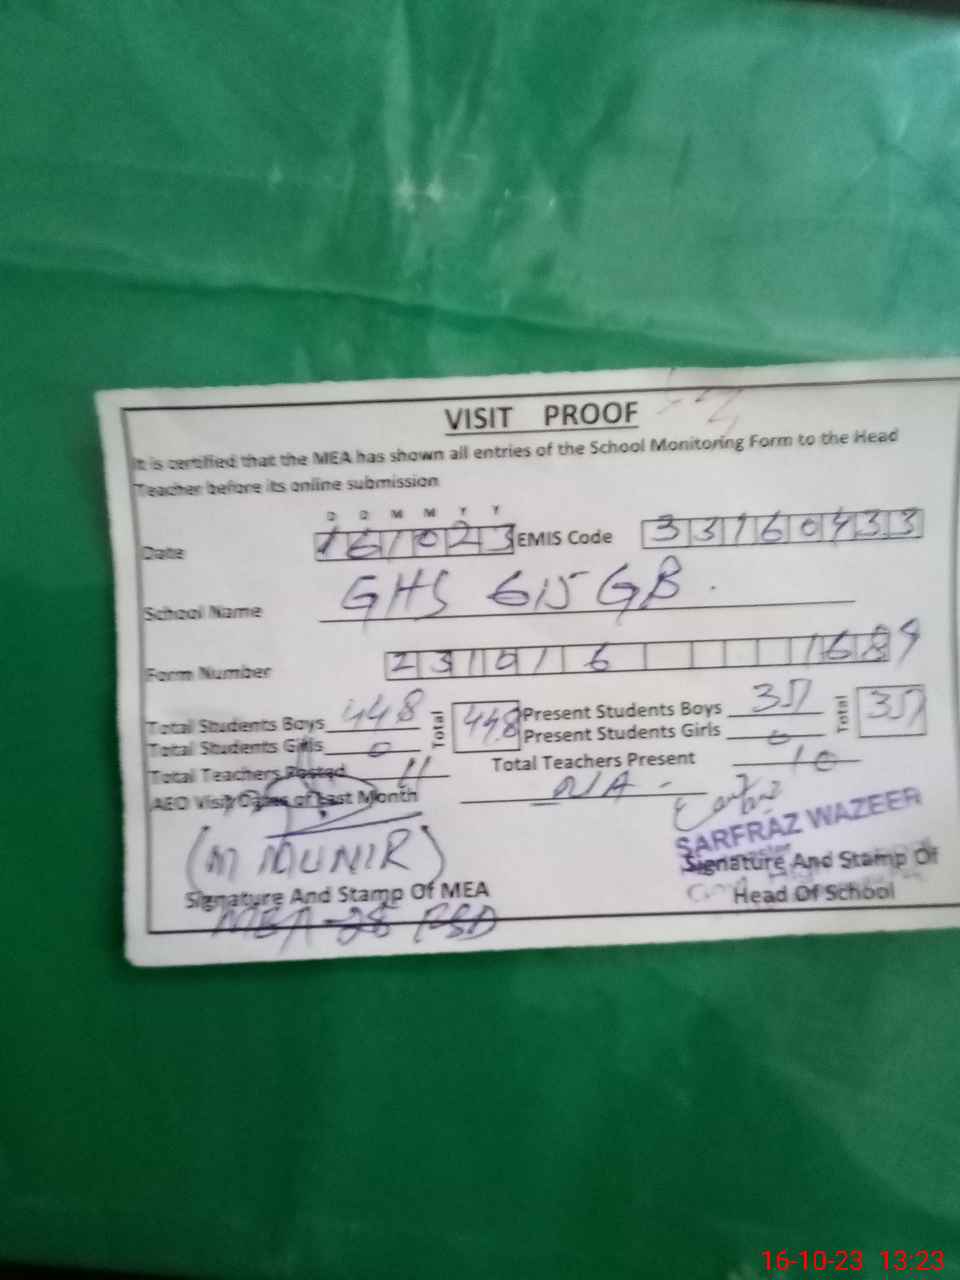 VISIT PROOF
It is certified that the MEA has shown all entries of the School Monitoring Form to the Head
Teacher before its online submission
D D M M Y Y
Date 161023 EMIS Code 33160433
School Name GHS 615 GB.
Form Number 231016 1689
Total Students Boys 448 Total 448 Present Students Boys 357 Total 357
Total Students Girls 0 Present Students Girls 0
Total Teachers Posted 11 Total Teachers Present 10
AEO Visit Dates of Last Month N/A -
SARFRAZ WAZEER
(M MUNIR) Signature And Stamp Of
Signature And Stamp Of MEA Head Of School
MEA-28 FSD
16-10-23 13:23